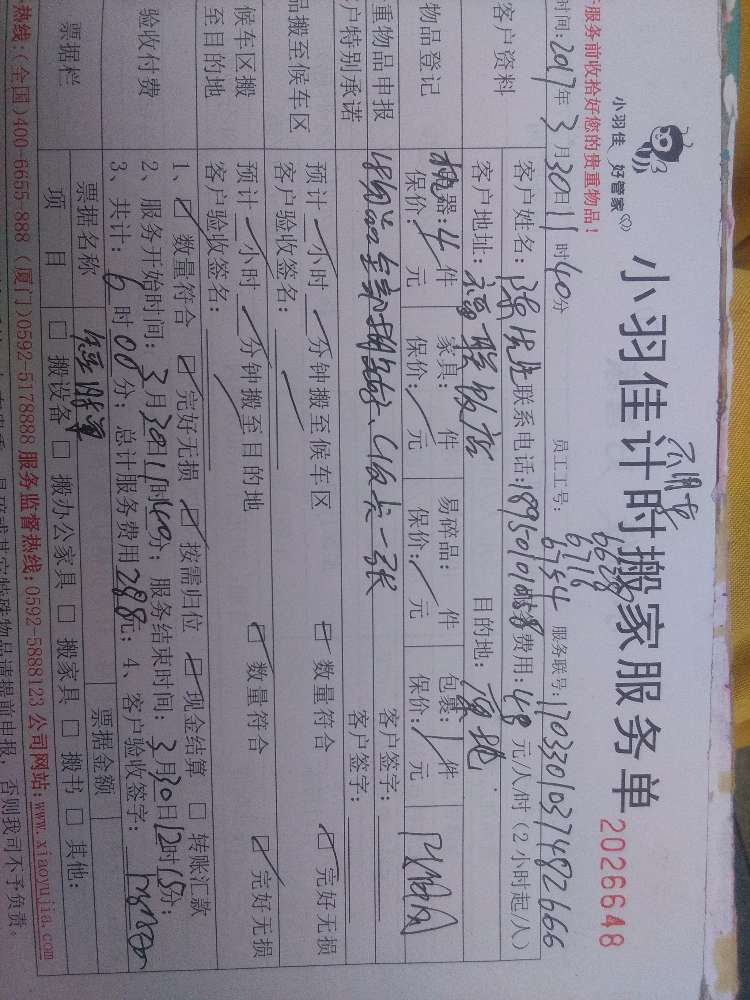 小羽佳 好管家
小羽佳计时搬家服务单
2026648
服务前收拾好您的贵重物品!
时间:2017年3月30日11时40分 员工工号: 6638 6716 6754 服务联号:1703301037482666
客户资料
客户姓名:陈先生 联系电话:18950101058 服务费用:48元/人/时(2小时起/人)
客户地址:福联饭店 目的地:原地
物品登记
机器:4件 家具: 件 易碎品: 件 包裹: 件
保价: 元 保价: 元 保价: 元 保价: 元
重物品申报
客户特别承诺
客户签字:
客户签字:
品搬至候车区
预计 小时 分钟搬至候车区 数量符合 完好无损
客户验收签名:
候车区搬
至目的地
预计 小时 分钟搬至目的地 数量符合 完好无损
客户验收签名:
验收付费
1、 数量符合 完好无损 按需归位 现金结算 转账汇款
2、服务开始时间:3月30日11时40分;服务结束时间:3月30日12时15分;
3、共计:6时00分;总计服务费用288元;4、客户验收签字:
票据栏
票据名称 票据金额
项目 搬设备 搬办公家具 搬家具 搬书 其他:
热线:(全国)400-6655-888 (厦门)0592-5178888 服务监督热线:0592-5888123 公司网站:www.xiaoyujia.com
易碎或其它特殊物品请提前申报,否则我司不予负责。